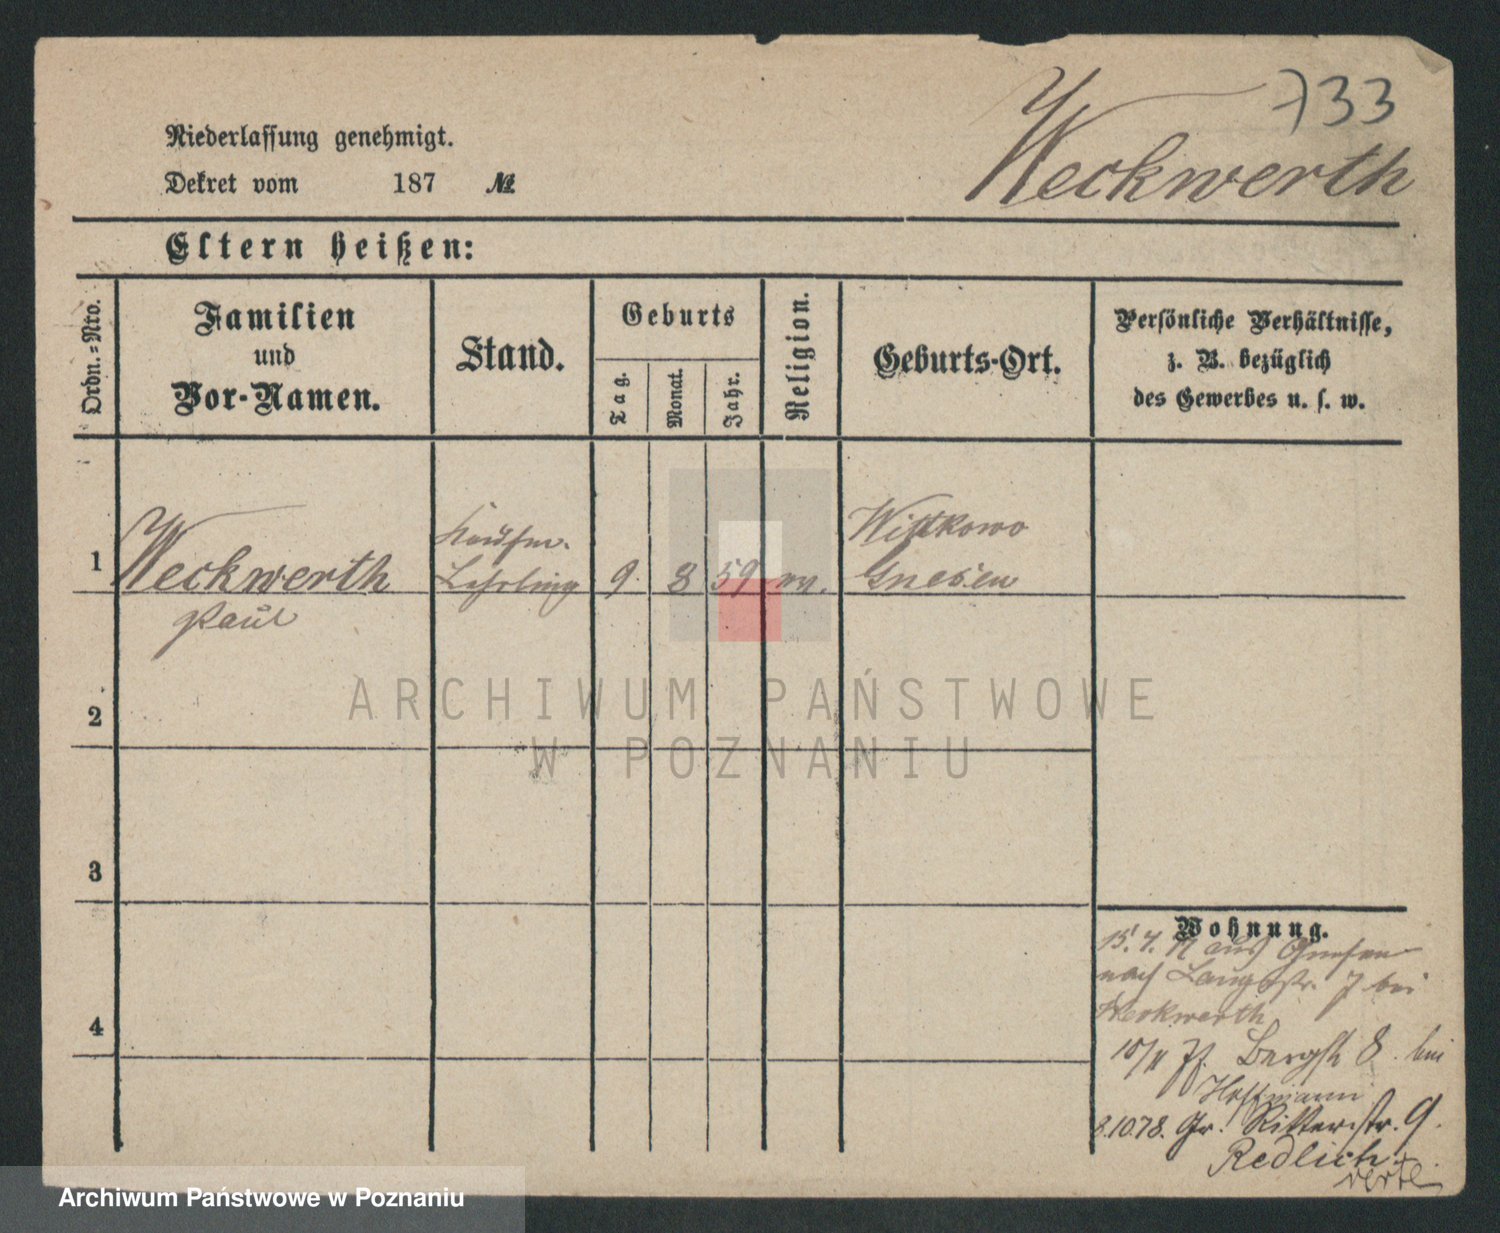 733
Weckwerth
Niederlassung genehmigt.
Dekret vom 187 №
Eltern heißen:
Ordn.=Nro.
Familien
und
Vor-Namen.
Stand.
Geburts
Tag.
Monat.
Jahr.
Religion.
Geburts-Ort.
Persönliche Verhältnisse,
z. B. bezüglich
des Gewerbes u. s. w.
1
Weckwerth
Paul
Kaufm.
Lehrling
9. 8 59
Wittkowo
Gnesen
2
3
4
Wohnung.
15. 7. aus Gnesen
nach Langstr. 7 bei
Weckwerth
Bergstr 8. bei
Hoffmann
8.10.78. Gr. Ritterstr. 9.
Redlich
ARCHIWUM PAŃSTWOWE
W POZNANIU
Archiwum Państwowe w Poznaniu